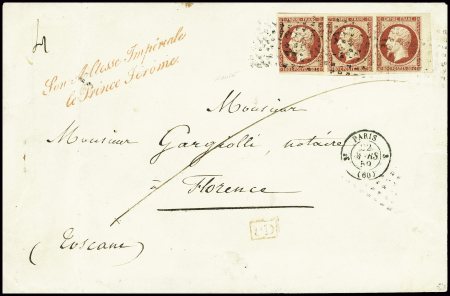 EMPIRE FRANC. EMPIRE FRANC. EMPIRE FRANC.
Son Altesse Impériale
le Prince Jérôme.
Monsieur
Monsieur Gargiolli, notaire
à
Florence
(Toscane)
PARIS
22
MARS
59
(60)
P.D.